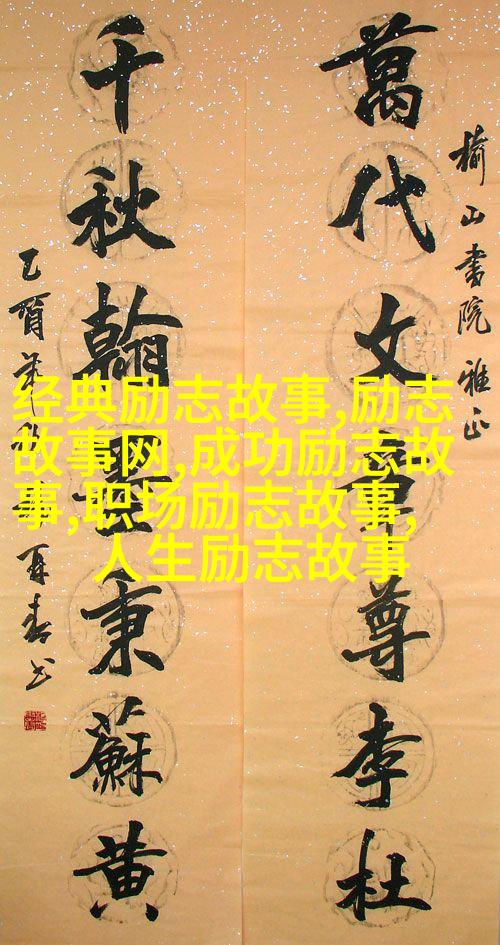 榆山書院雅正
萬代文章尊李杜
千秋翰墨秉蘇黄
乙酉
经典励志故事,励志
故事网,成功励志故
事,职场励志故事,
人生励志故事